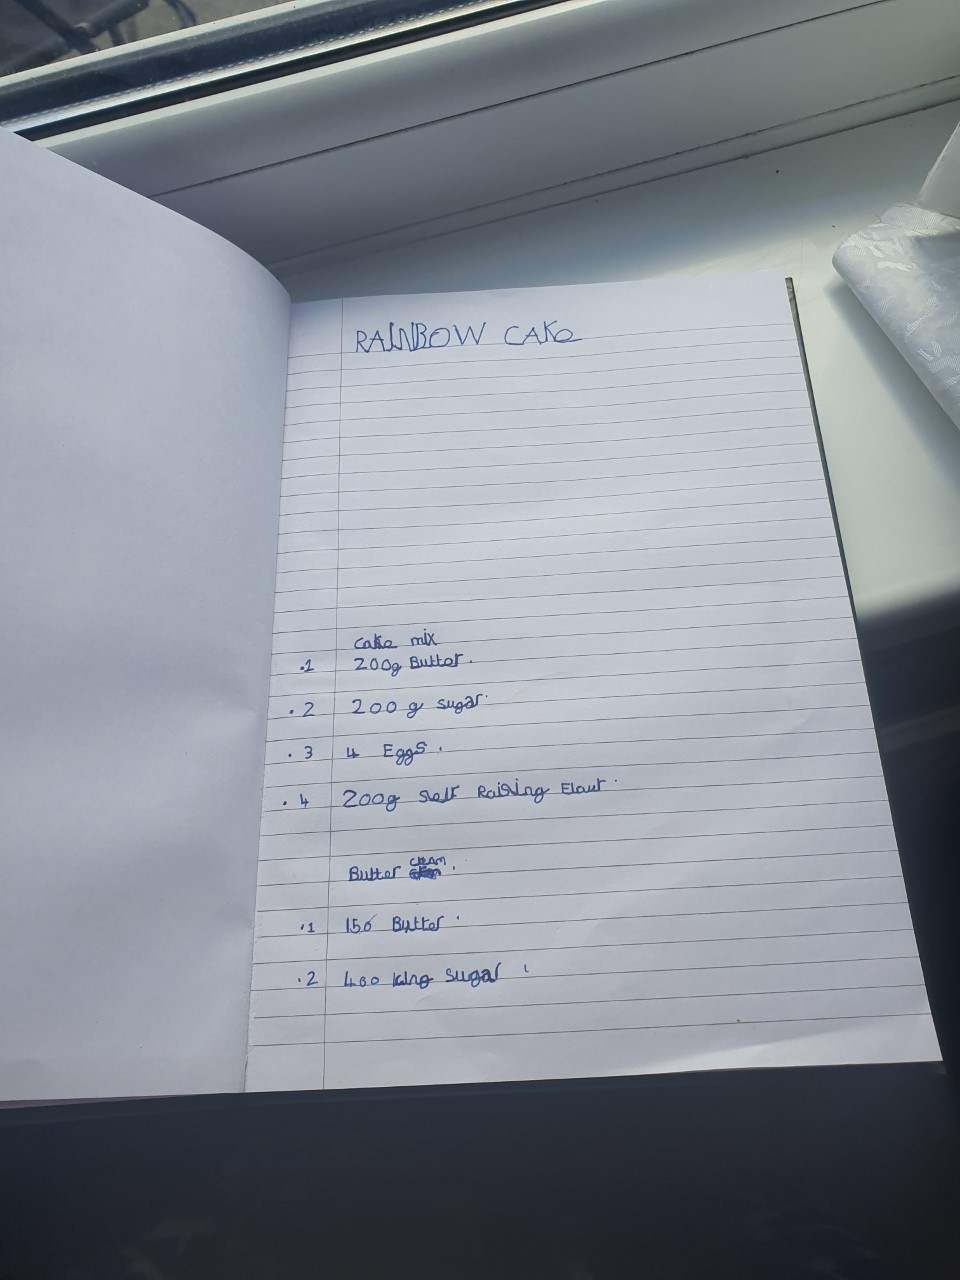 RAINBOW CAKe
cake mix
.1 200g Butter.
.2 200g sugar.
.3 4 Eggs.
.4 200g Self Raising Flour.
Butter cream.
.1 150 Butter.
.2 400 sugar